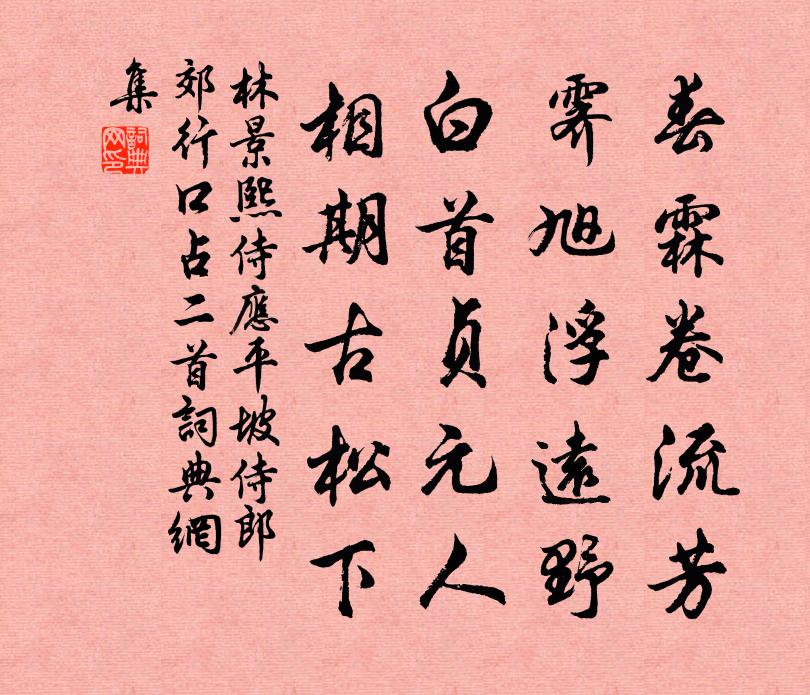 春霖卷流芳
霽旭浮遠野
白首貞元人
相期古松下
林景熙侍應平坡侍郎
郊行口占二首詞典網
集
詞典網印